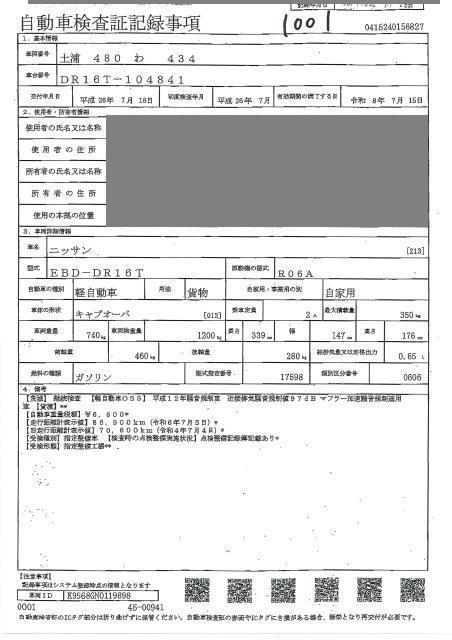 自動車検査証記録事項
1001
0415240156827
1. 基本情報
車両番号 土浦 480 わ 434
車台番号 DR16T-104841
交付年月日 平成 26年 7月 16日 初度検査年月 平成 26年 7月 有効期間の満了する日 令和 8年 7月 15日
2. 使用者・所有者情報
使用者の氏名又は名称
使用者の住所
所有者の氏名又は名称
所有者の住所
使用の本拠の位置
3. 車両詳細情報
車名 ニッサン [213]
型式 EBD-DR16T 原動機の型式 R06A
自動車の種別 軽自動車 用途 貨物 自家用・事業用の別 自家用
車体の形状 キャブオーバ [012] 乗車定員 2人 最大積載量 350kg
車両重量 740kg 車両総重量 1200kg 長さ 339cm 幅 147cm 高さ 176cm
前軸重 460kg 後軸重 280kg 総排気量又は定格出力 0.65 L
燃料の種類 ガソリン 型式指定番号 17598 類別区分番号 0606
4. 備考
【茨城】 継続検査 【軽自動車OSS】 平成12年騒音規制車 近接排気騒音規制値97dB マフラー加速騒音規制適用
車 【貨物】**
【自動車重量税額】 ¥6,600*
【走行距離計表示値】 86,900km (令和6年7月5日)*
【旧走行距離計表示値】 70,600km (令和4年7月4日)*
【受検種別】 指定整備車 【検査時の点検整備実施状況】 点検整備記録簿記載あり*
【受検形態】 指定整備工場**
【注意事項】
記録事項はシステム登録時点の情報となります
車両ID K9568GN0119898
0001 45-00941
自動車検査証のICタグ部分は折り曲げずに保管ください。自動車検査証の券面やICタグにき損がある場合、無効となり再交付が必要です。